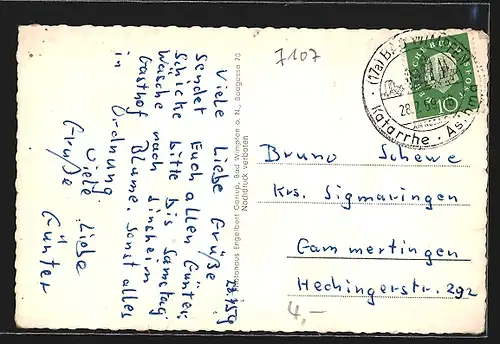 22.7.59
Viele Liebe Grüße
Sendet Euch allen Günter.
Schicke Bitte bis Samstag
Wäsche nach Sinsheim
Gasthof Blume. Sonst alles
in Ordnung
Viele Liebe
Grüße
Günter
Photohaus Engelbert Gostup, Bad Wimpfen a. N., Burggasse 70
Nachdruck verboten
7107
(17a) BAD WIMPFEN
Katarrhe · Asthma
10
Bruno Schewe
Krs. Sigmaringen
Gammertingen
Hechingerstr. 292
4,-